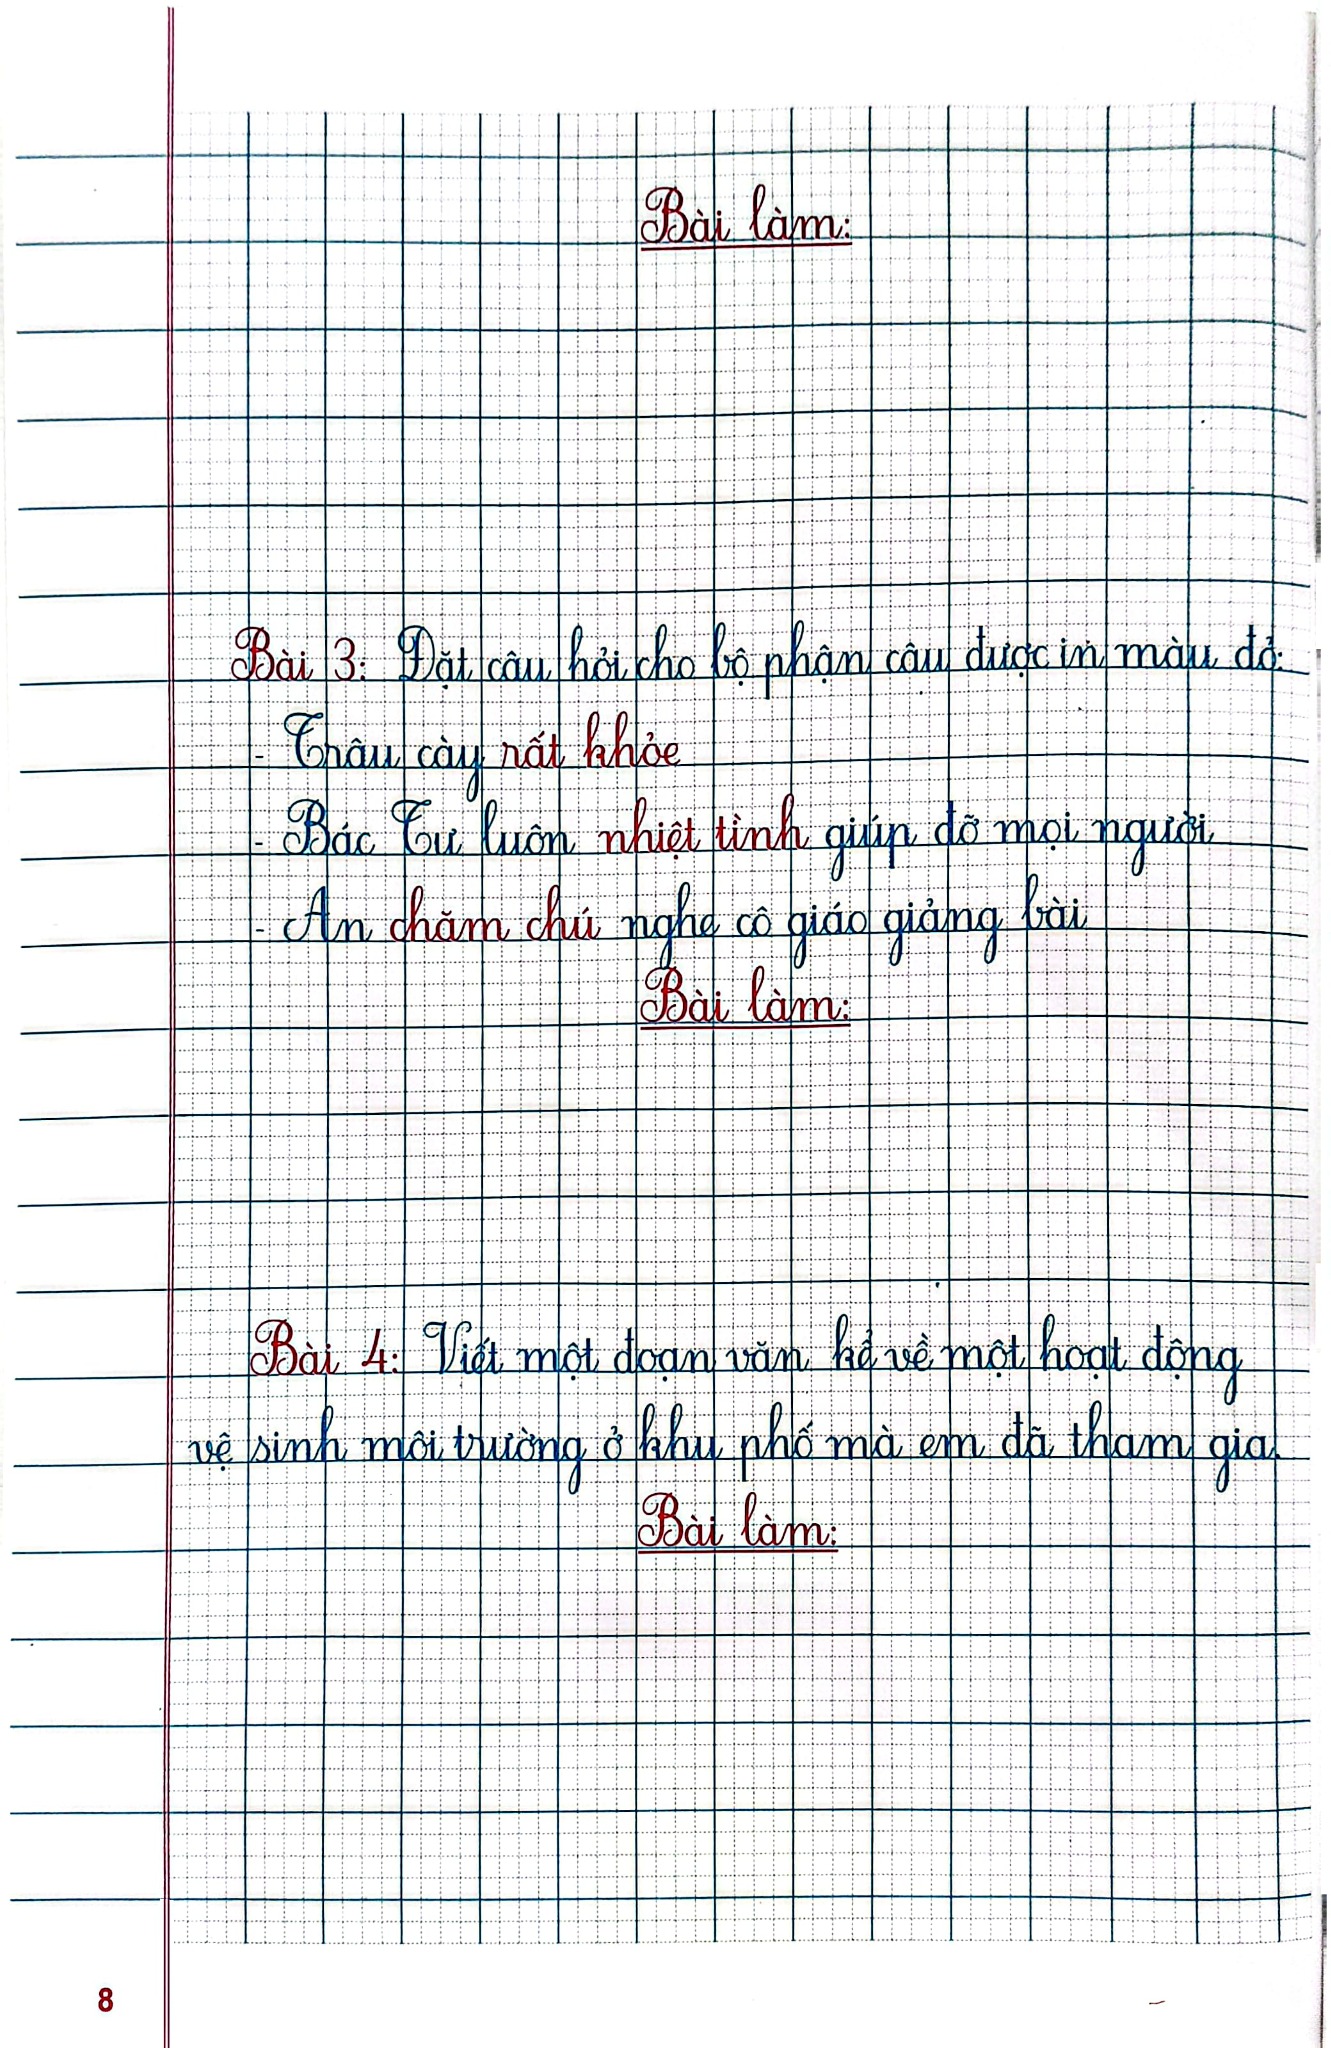 Bài làm:
Bài 3: Đặt câu hỏi cho bộ phận câu được in màu đỏ:
- Trâu cày rất khỏe
- Bác Tư luôn nhiệt tình giúp đỡ mọi người
- An chăm chú nghe cô giáo giảng bài
Bài làm:
Bài 4: Viết một đoạn văn kể về một hoạt động
vệ sinh môi trường ở khu phố mà em đã tham gia.
Bài làm:
8